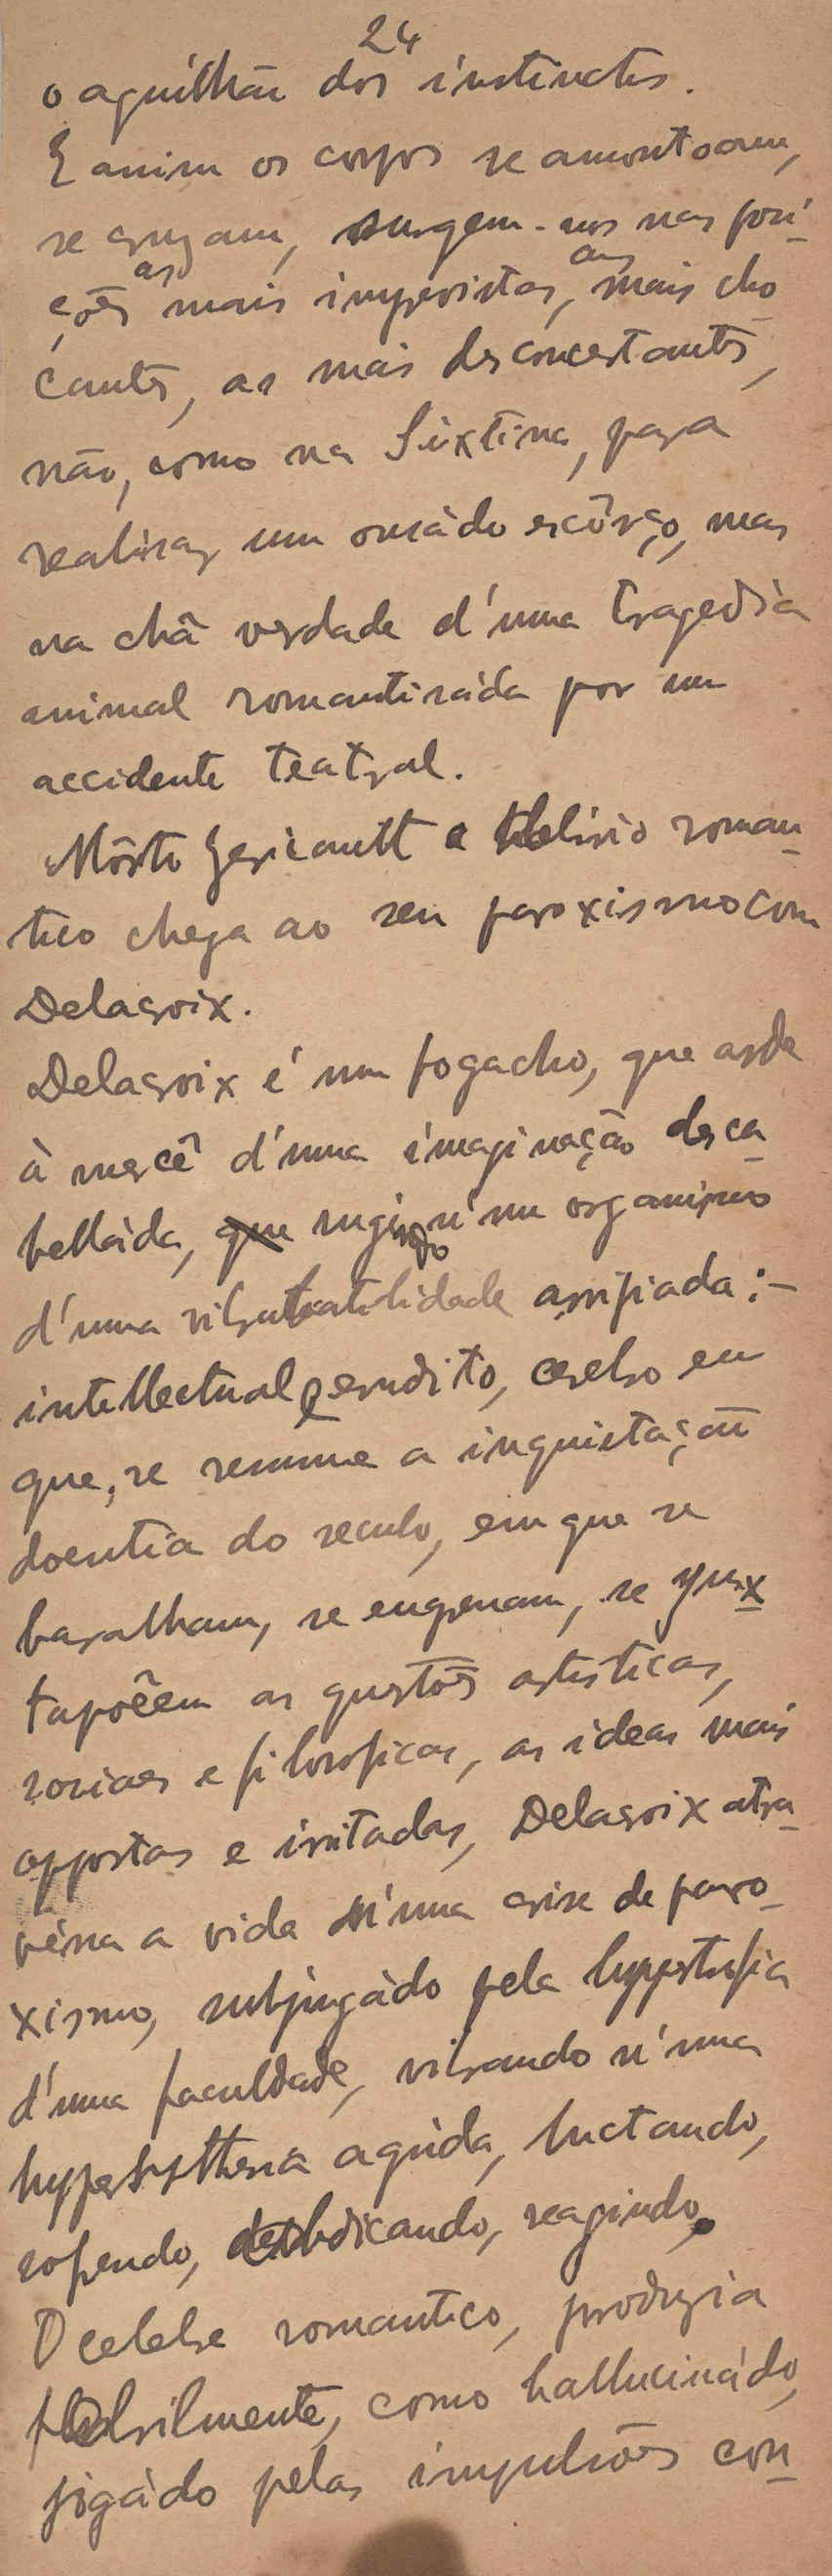 24
o aguilhão dos instinctos.
E assim os corpos se amontoam,
se cruzam, surgem-nos nas posi-
ções as mais imprevistas, as mais cho
cantes, as mais desconcertantes,
não, como na Sixtina, para
realisar um ousádo escôrço, mas
na chã verdade d'uma tragedia
animal romantisáda por um
accidente teatral.
Môrto Gericault o delirio roman-
tico chega ao seu paroxismo com
Delacroix.
Delacroix é um fogacho, que arde
à mercê d'uma imaginação desca-
belláda, que rugindo n'um organismo
d'uma vibratilidade arripiada:-
intellectual, erudito, cerebro em
que, se resume a inquietação
doentia do seculo, em que se
baralham, se engrenam, se jux-
tapõem as questões artisticas,
sociaes e filosoficas, as ideas mais
oppostas e irritadas, Delacroix atra-
véssa a vida n'uma crise de paro-
xismo, subjugádo pela hypertrofia
d'uma faculdade, vibrando n'uma
agúda, luctando,
sofrendo, reagindo.
O celebre romantico, produzia
febrilmente, como hallucinádo,
jogádo pelas impulsões con-